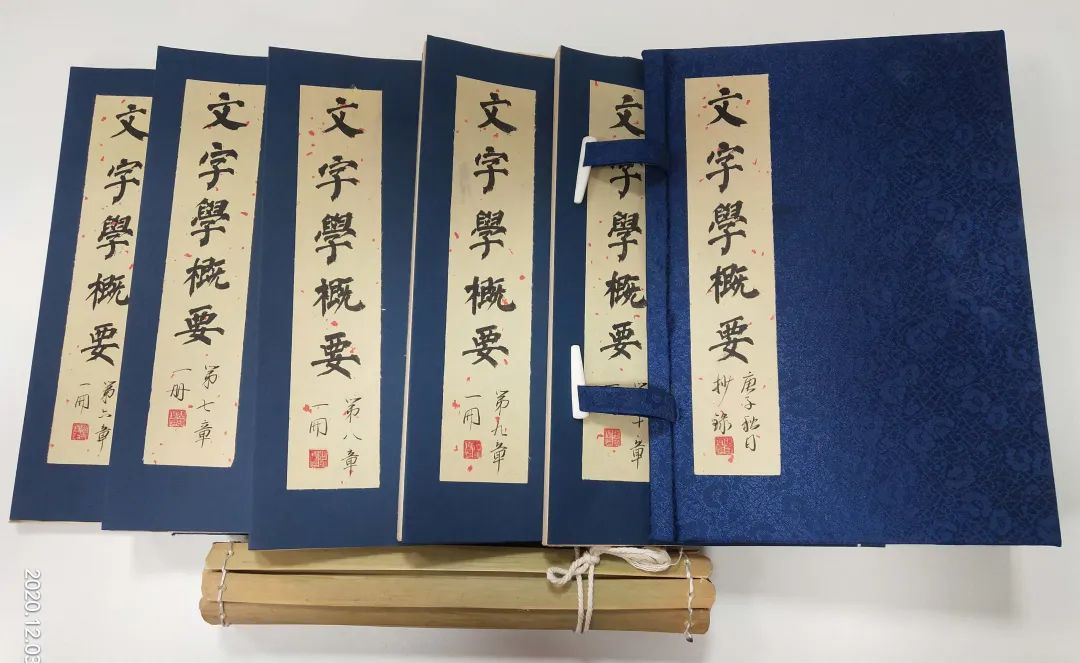 文字學概要
第六章
一冊
文字學概要
第七章
一册
文字學概要
第八章
一冊
文字學概要
第九章
一冊
文字學概要
第十章
文字學概要
庚子秋日
抄錄
2020.12.03